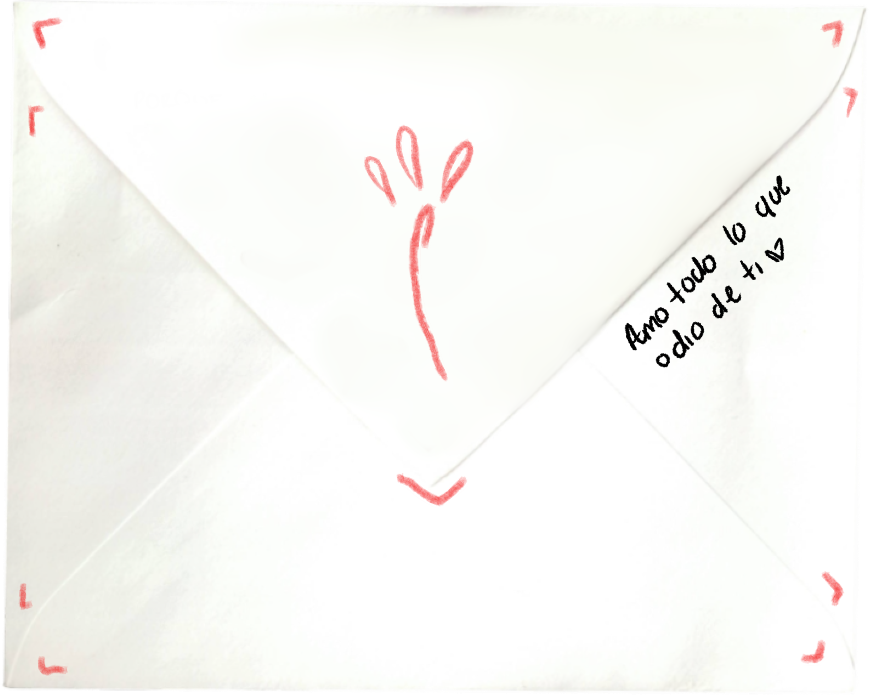 Amo todo lo que
odio de ti ♡